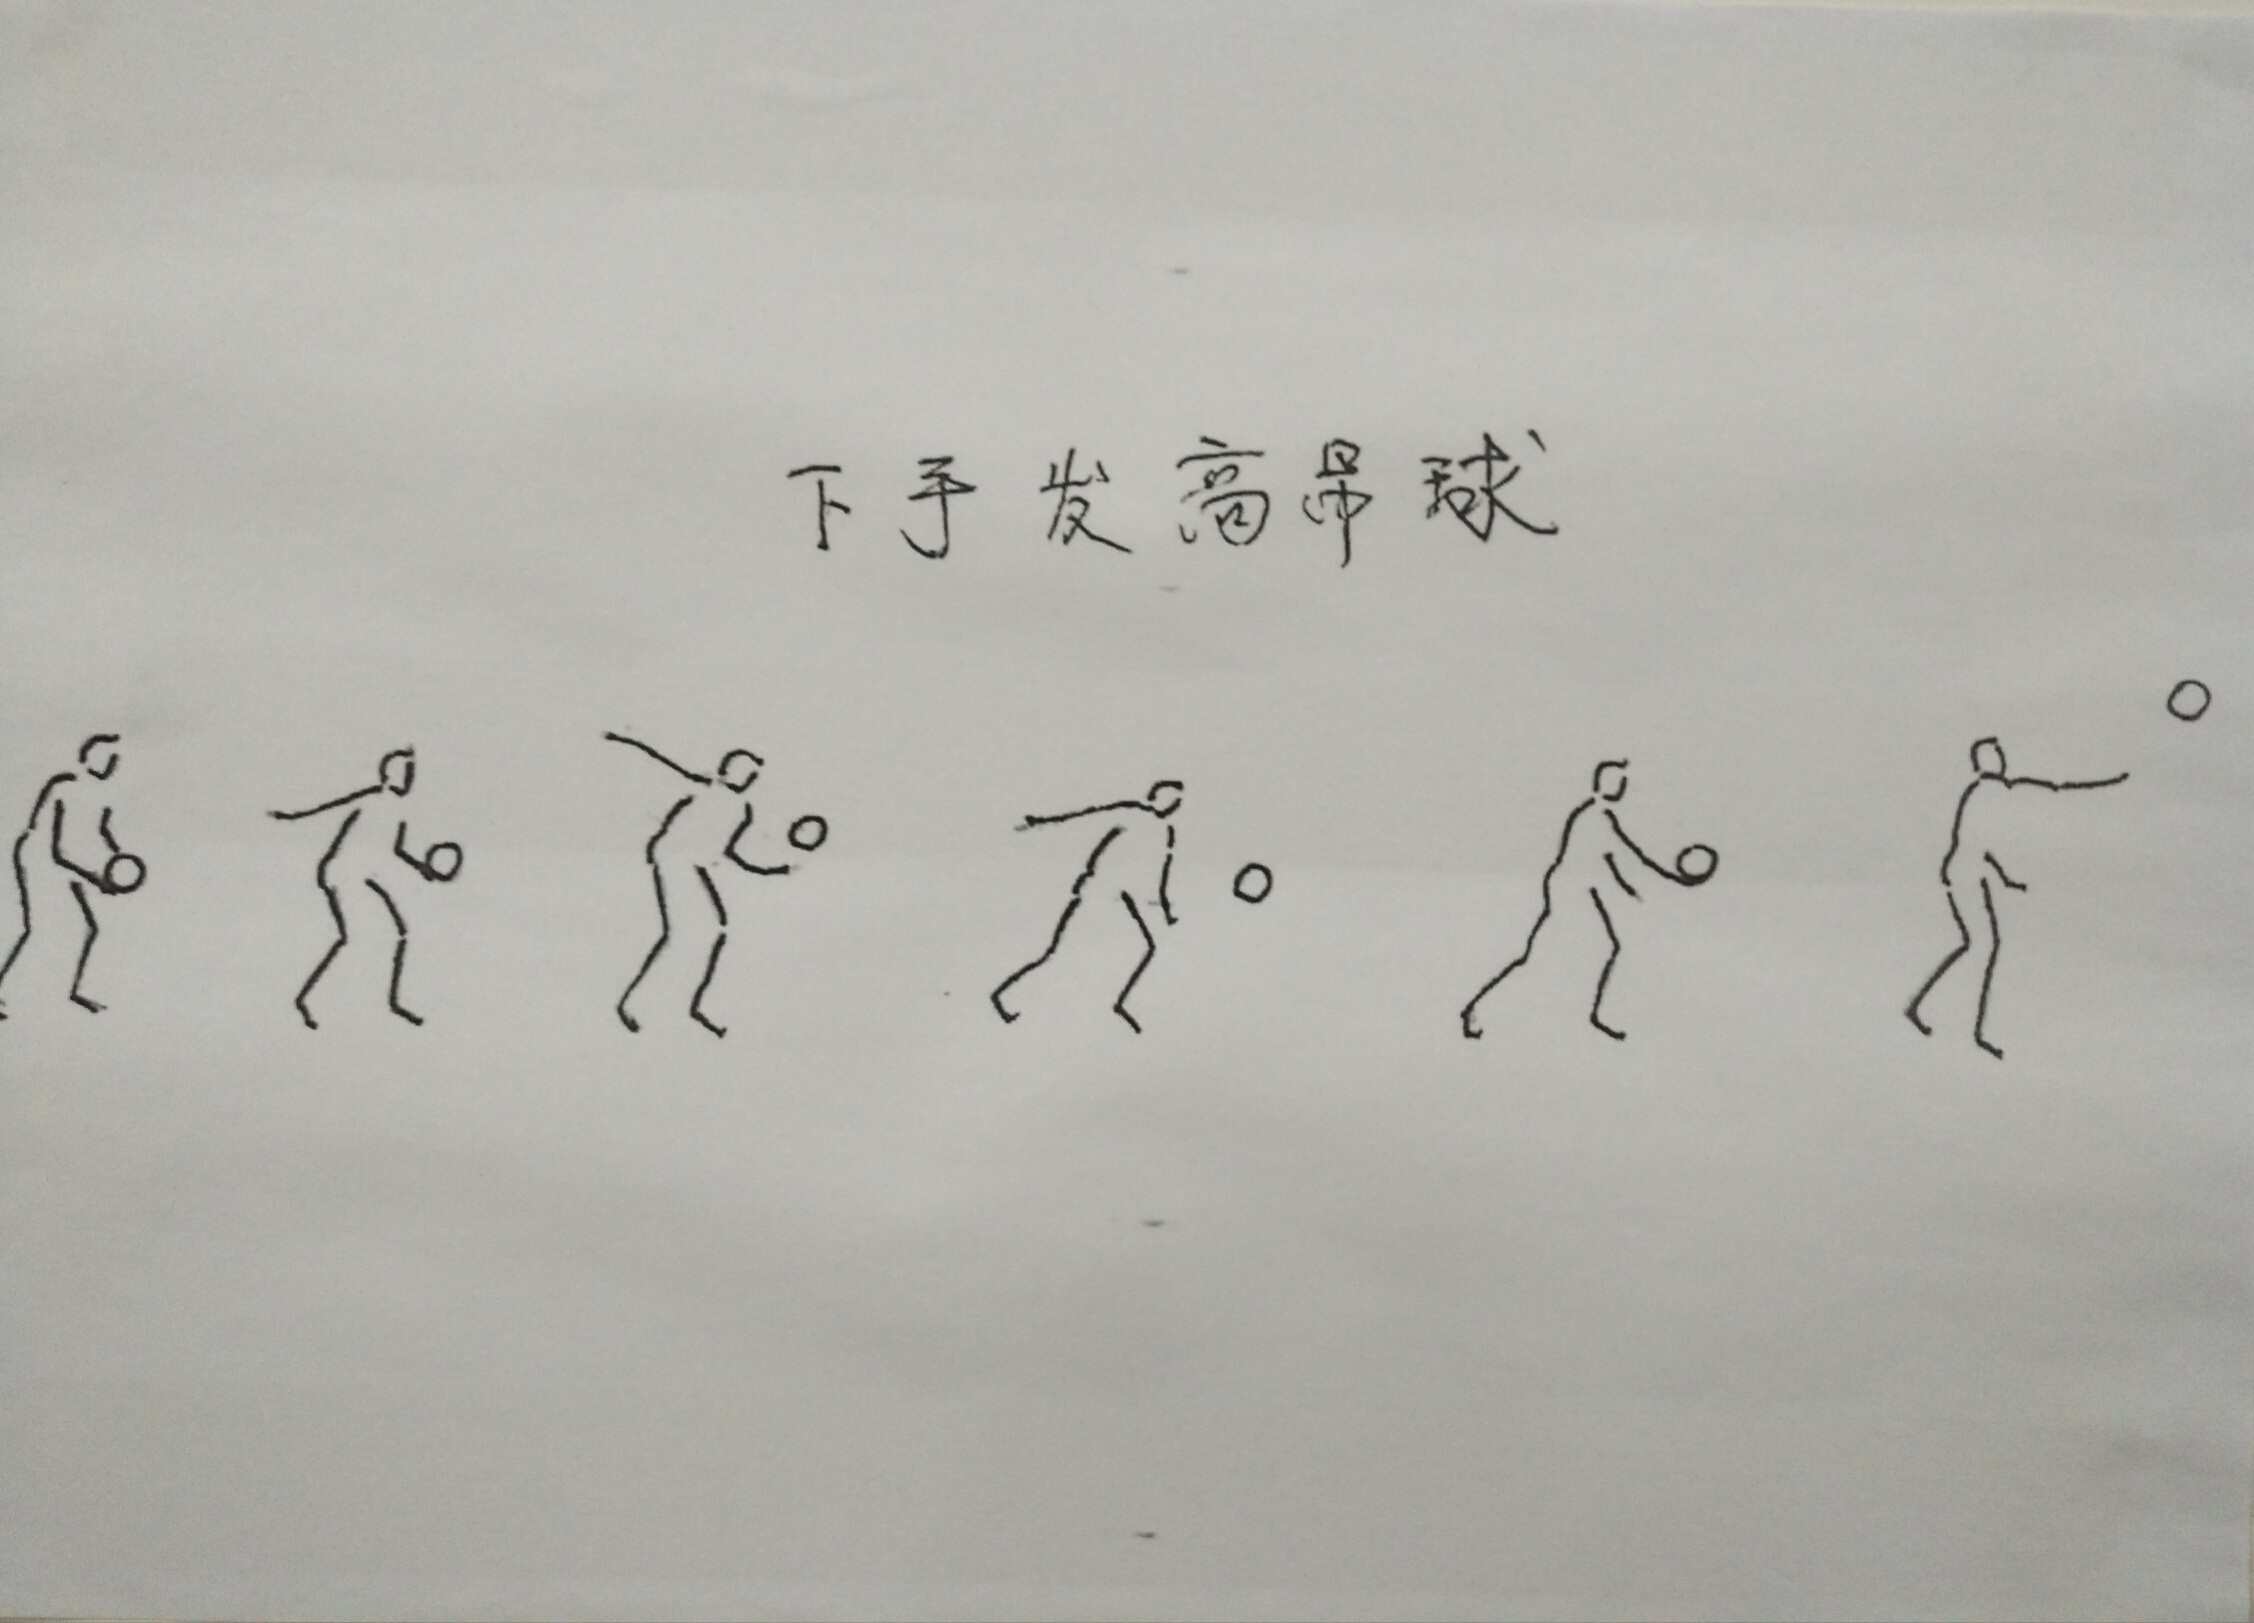 下手发高吊球